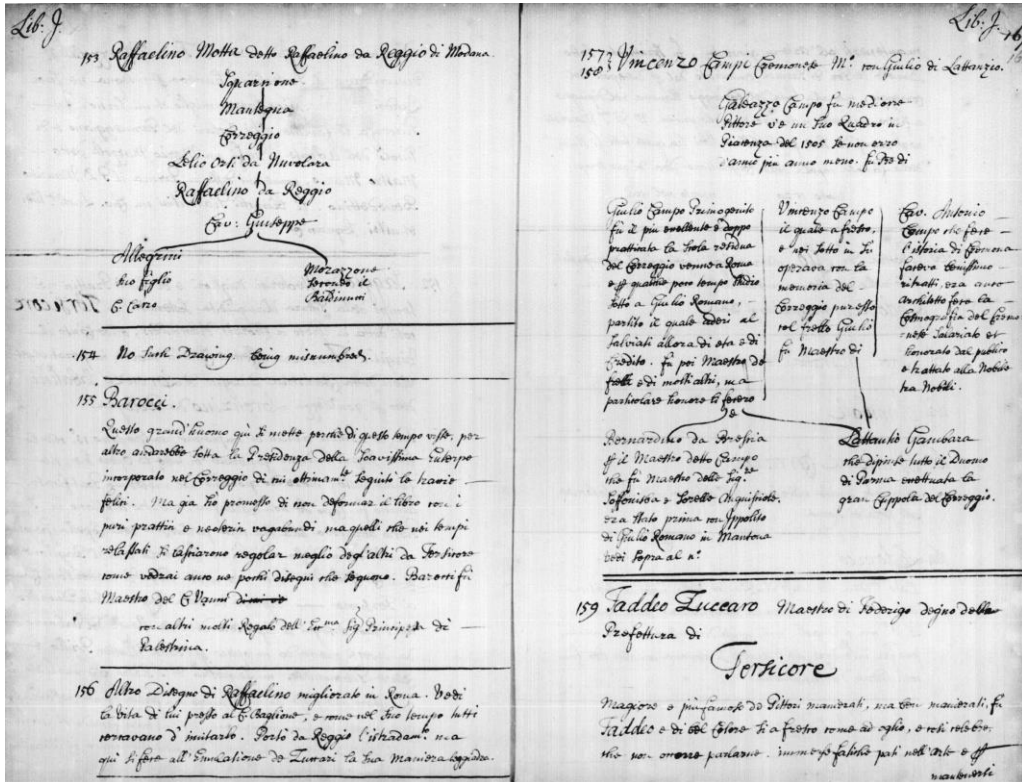 Lib. J.
153 Raffaelino Motta detto Raffaelino da Reggio di Modana
Squarcione
Mantegna
Correggio
Lelio Orsi da Nuvolara
Raffaelino da Reggio
Cav: Giuseppe
Allegrini
suo figlio
e Caro
Morazzone
secondo il
Baldinucci
Tersicore
154 No such Drawing being misnumbred.
155 Barocci.
Questo grand'huomo quì si mette perche di questo tempo visse, per
altro andrebbe sotto la Presidenza della soavissima Euterpe
incorporato nel Correggio di cui ottimamte seguitò le traccie
felici. Ma già hò promesso di non deformar il libro con i
puri prattici e vagabondi, ma quelli che nei tempi
relassati si lasciarono regolar meglio degl'altri da Tersicore
come vedrai anco ne pochi disegni che seguono. Barocci fù
Maestro del C. Vanni
con altri molti Regali dell' Sig. Principessa di
Palestrina.
156 Altro Disegno di Raffaelino migliorato in Roma. Vedi
la vita di lui presso al C. Baglione, e come nel suo tempo tutti
cercavano d'imitarlo. Portò da Reggio ma
quì si fece all' Emulatione de Zuccari la sua Maniera leggiadra.
Lib. J.
157
158 Vincenzo Campi Cremonese Mo. con Giulio di Lattanzio.
Galeazzo Campo fu mediocre
Pittore v'è un suo Quadro in
Piacenza del 1505 se non erro
d'anno più anno meno. fu Pre di
Giulio Campo Primogenito
fù il più eccellente e doppo
pratticata la scola
del Correggio venne a Roma
e quasche poco tempo studiò
sotto a Giulio Romano,
partito il quale aderì al
Salviati allora di età e di
Credito. fù poi Maestro de
fratelli e di molti altri, ma
particolare honore li fecero
Vincenzo Campo
il quale a fresco,
e nei
operava con la
memoria del
Correggio pur esso
col frello Giulio
fù Maestro di
Cav. Antonio
Campo che fece
l'istoria di Cremona
faceva benissimo
ritratti, era anco
Architetto fece la
Corografia del Cremo
nese Salariato et
honorato dal publico
e trattato alla Nobile
tra Nobili.
Bernardino da Brescia
il Maestro detto Campo
che fù Maestro delle Sigre
Sofonisba e sorelle Anguisciole.
era stato prima con Ippolito
di Giulio Romano in Mantova
vedi sopra al n.o
Lattantio Gambara
che dipinse tutto il Duomo
di Parma eccettuata la
gran Cuppola del Correggio.
159 Taddeo Zuccaro Maestro di Federigo degno della
Prefettura di
Tersicore
Magiore e più famoso de Pittori manierati, ma ben manierati, fù
Taddeo e di bel Colore sì a fresco come ad oglio, e così celebre,
che non occorre parlarne. immense fatiche patì nell'arte e
mantenersi